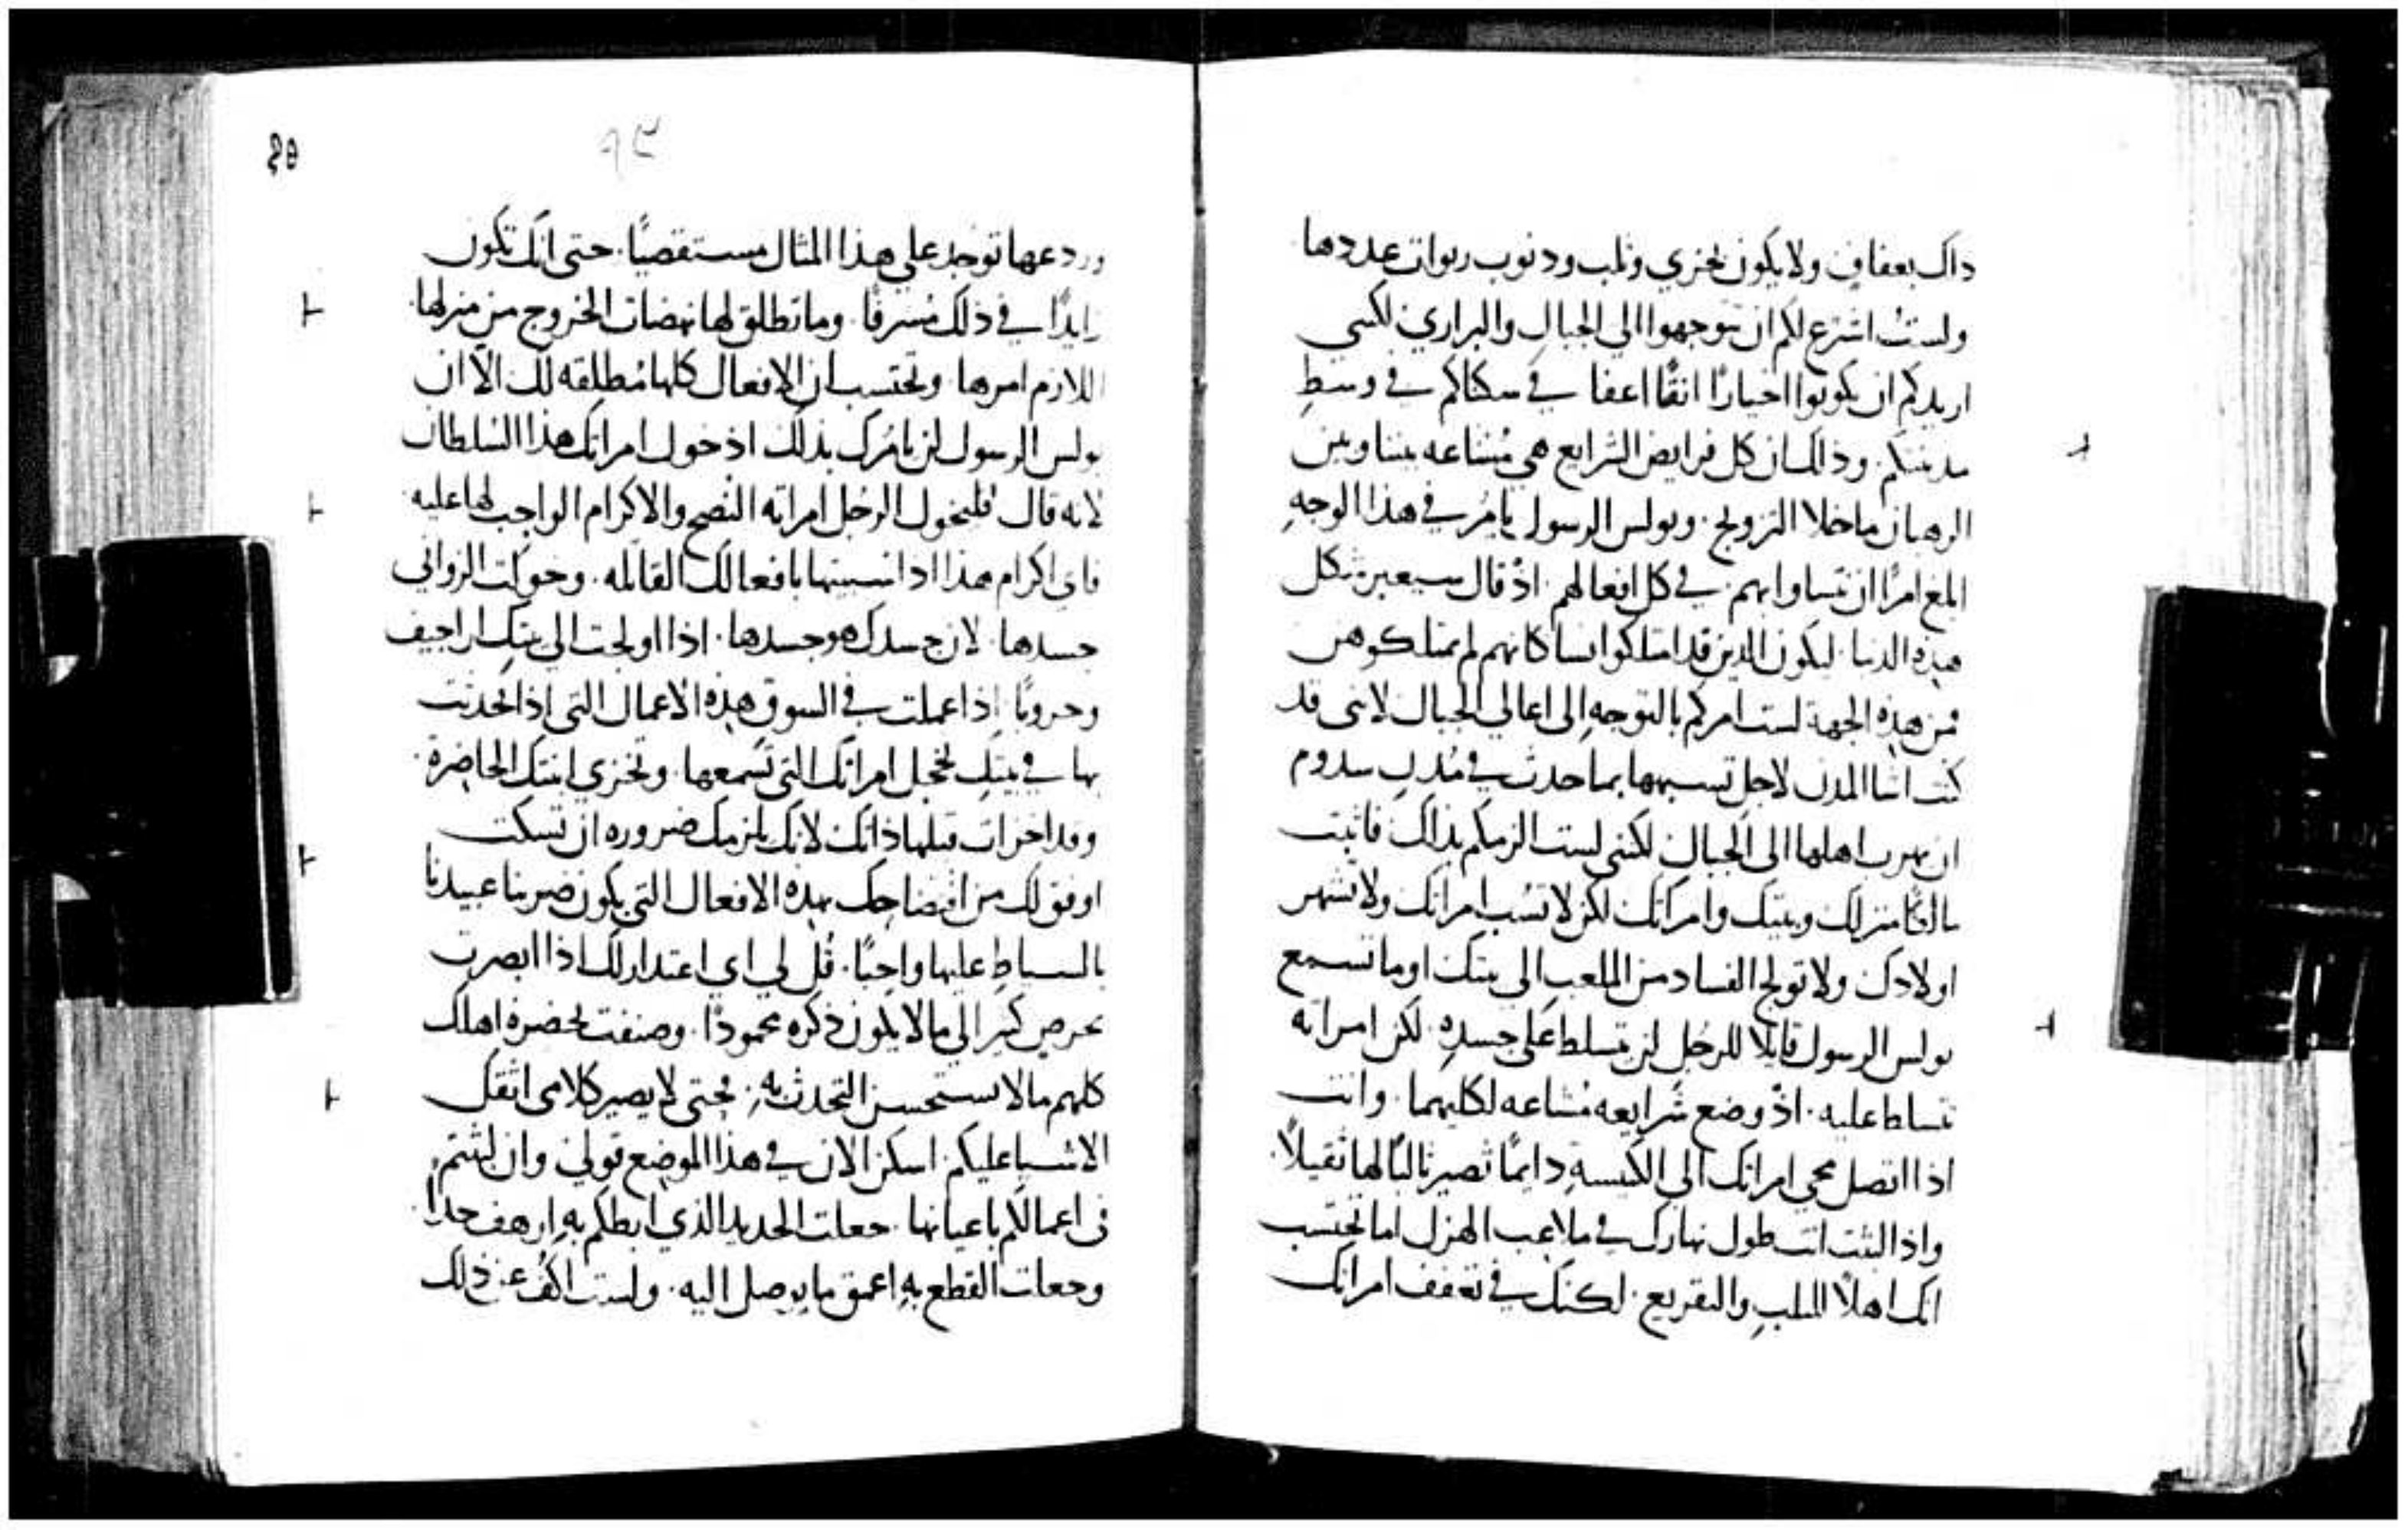 داك بعفافٍ ولا يكون بخزي وثلب ودنوب ربوات عددها
ولستُ اشرع لكم ان تتوجهوا الي الجبالِ والبراري لكنني
اريدكم ان تكونوا اخيارًا انقًا اعفا في سكناكم في وسطِ
مدينتكم. وذلك ان كل فرايض الشرايع هي مُشاعه بيننا وبين
الرهبان ماخلا التزويج. وبولس الرسول يامُر في هذا الوجهِ
امرًا ان نتساوا بهم. في كل افعالهم. اذ قال سيعبر شكل
هذه الدنيا. ليكون الذين قد امتلكوا نسا كانهم لم يمتلكوهن
فمن هذه الجهة لست امركم بالتوجه الى اعالي الجبال لاننى قد
كنت اشا المدن لاجل تسبهها بما حدث في مُدن سدوم
ان يهرب اهلها الى الجبال لكننى لست الزمكم بذالك فاثبت
مالكًا منزلك وبيتك وامراتك لكن لا تسُب امراتك ولا تشهر
اولادك ولا تولج الفساد من الملعب الى بيتك اوما تسمع
بولس الرسول قايلًا للرجل لن تسلط على جسدهِ. لكن امراته
تسلط عليه. اذ وضع شرايعه مُشاعه لكليهما. وانت
اذا اتصل مجي امراتك الي الكنيسةِ دايمًا تصير ثالبًا لها ثقيلًا.
واذا لبثت انت طول نهارك في ملاعب الهزل اما تحتسب
انك اهلًا للثلبِ والتقريع. لكنك في تعفف امراتك
٩٢
وردعها توجد على هذا المثال مستقصيًا. حتى انك تكون
زايدًا في ذلك مُسرفًا. وما تطلق لها نهضات الخروج من منزلها.
اللازم امرها. وتحتسب ان الافعال كلها مُطلقه لك الا ان
بولس الرسول لن يامُرك بذلك اذ خول امراتك هذا السُلطان
لانه قال فليخول الرجل امراته النصح والاكرام الواجب لها عليه.
فاي اكرام هذا اذا انسبتها بافعالك القاتله. وخولت الزواني
جسدها. لان جسدك هو جسدها. اذا اولجت الي بيتك اراجيف
وحروبًا. اذا عملت في السوق هذه الاعمال التي اذا تحدثت
بها في بيتك تخجل امراتك التي تسمعها. وتخزي ابنتك الحاضرة.
وقد اخزات قبلها ذاتك لانك يلزمك ضروره ان تسكت
اوفق لك من افتضاحك بهذه الافعال التي يكون ضربنا عبيدنا
بالسياطِ عليها واجبًا. قُل لي اي اعتدار لك اذا ابصرت
بحرصٍ كبير الي ما لا يكون ذكره محمودًا. وصنفت بحضرة اهلك
كلهم ما لا يستحسن التحدث بهِ. فحتى لا يصير كلامى اثقل
الاشيا عليكم. اسكن الان في هذا الموضع قولي. وان لبثتم
فى اعمالكم باعيانها. جعلت الحديد الذي ابطكم بهِ ارهف حدًا.
وجعلت القطع بهِ اعمق ما يوصل اليه. ولست اكُف عن ذلك